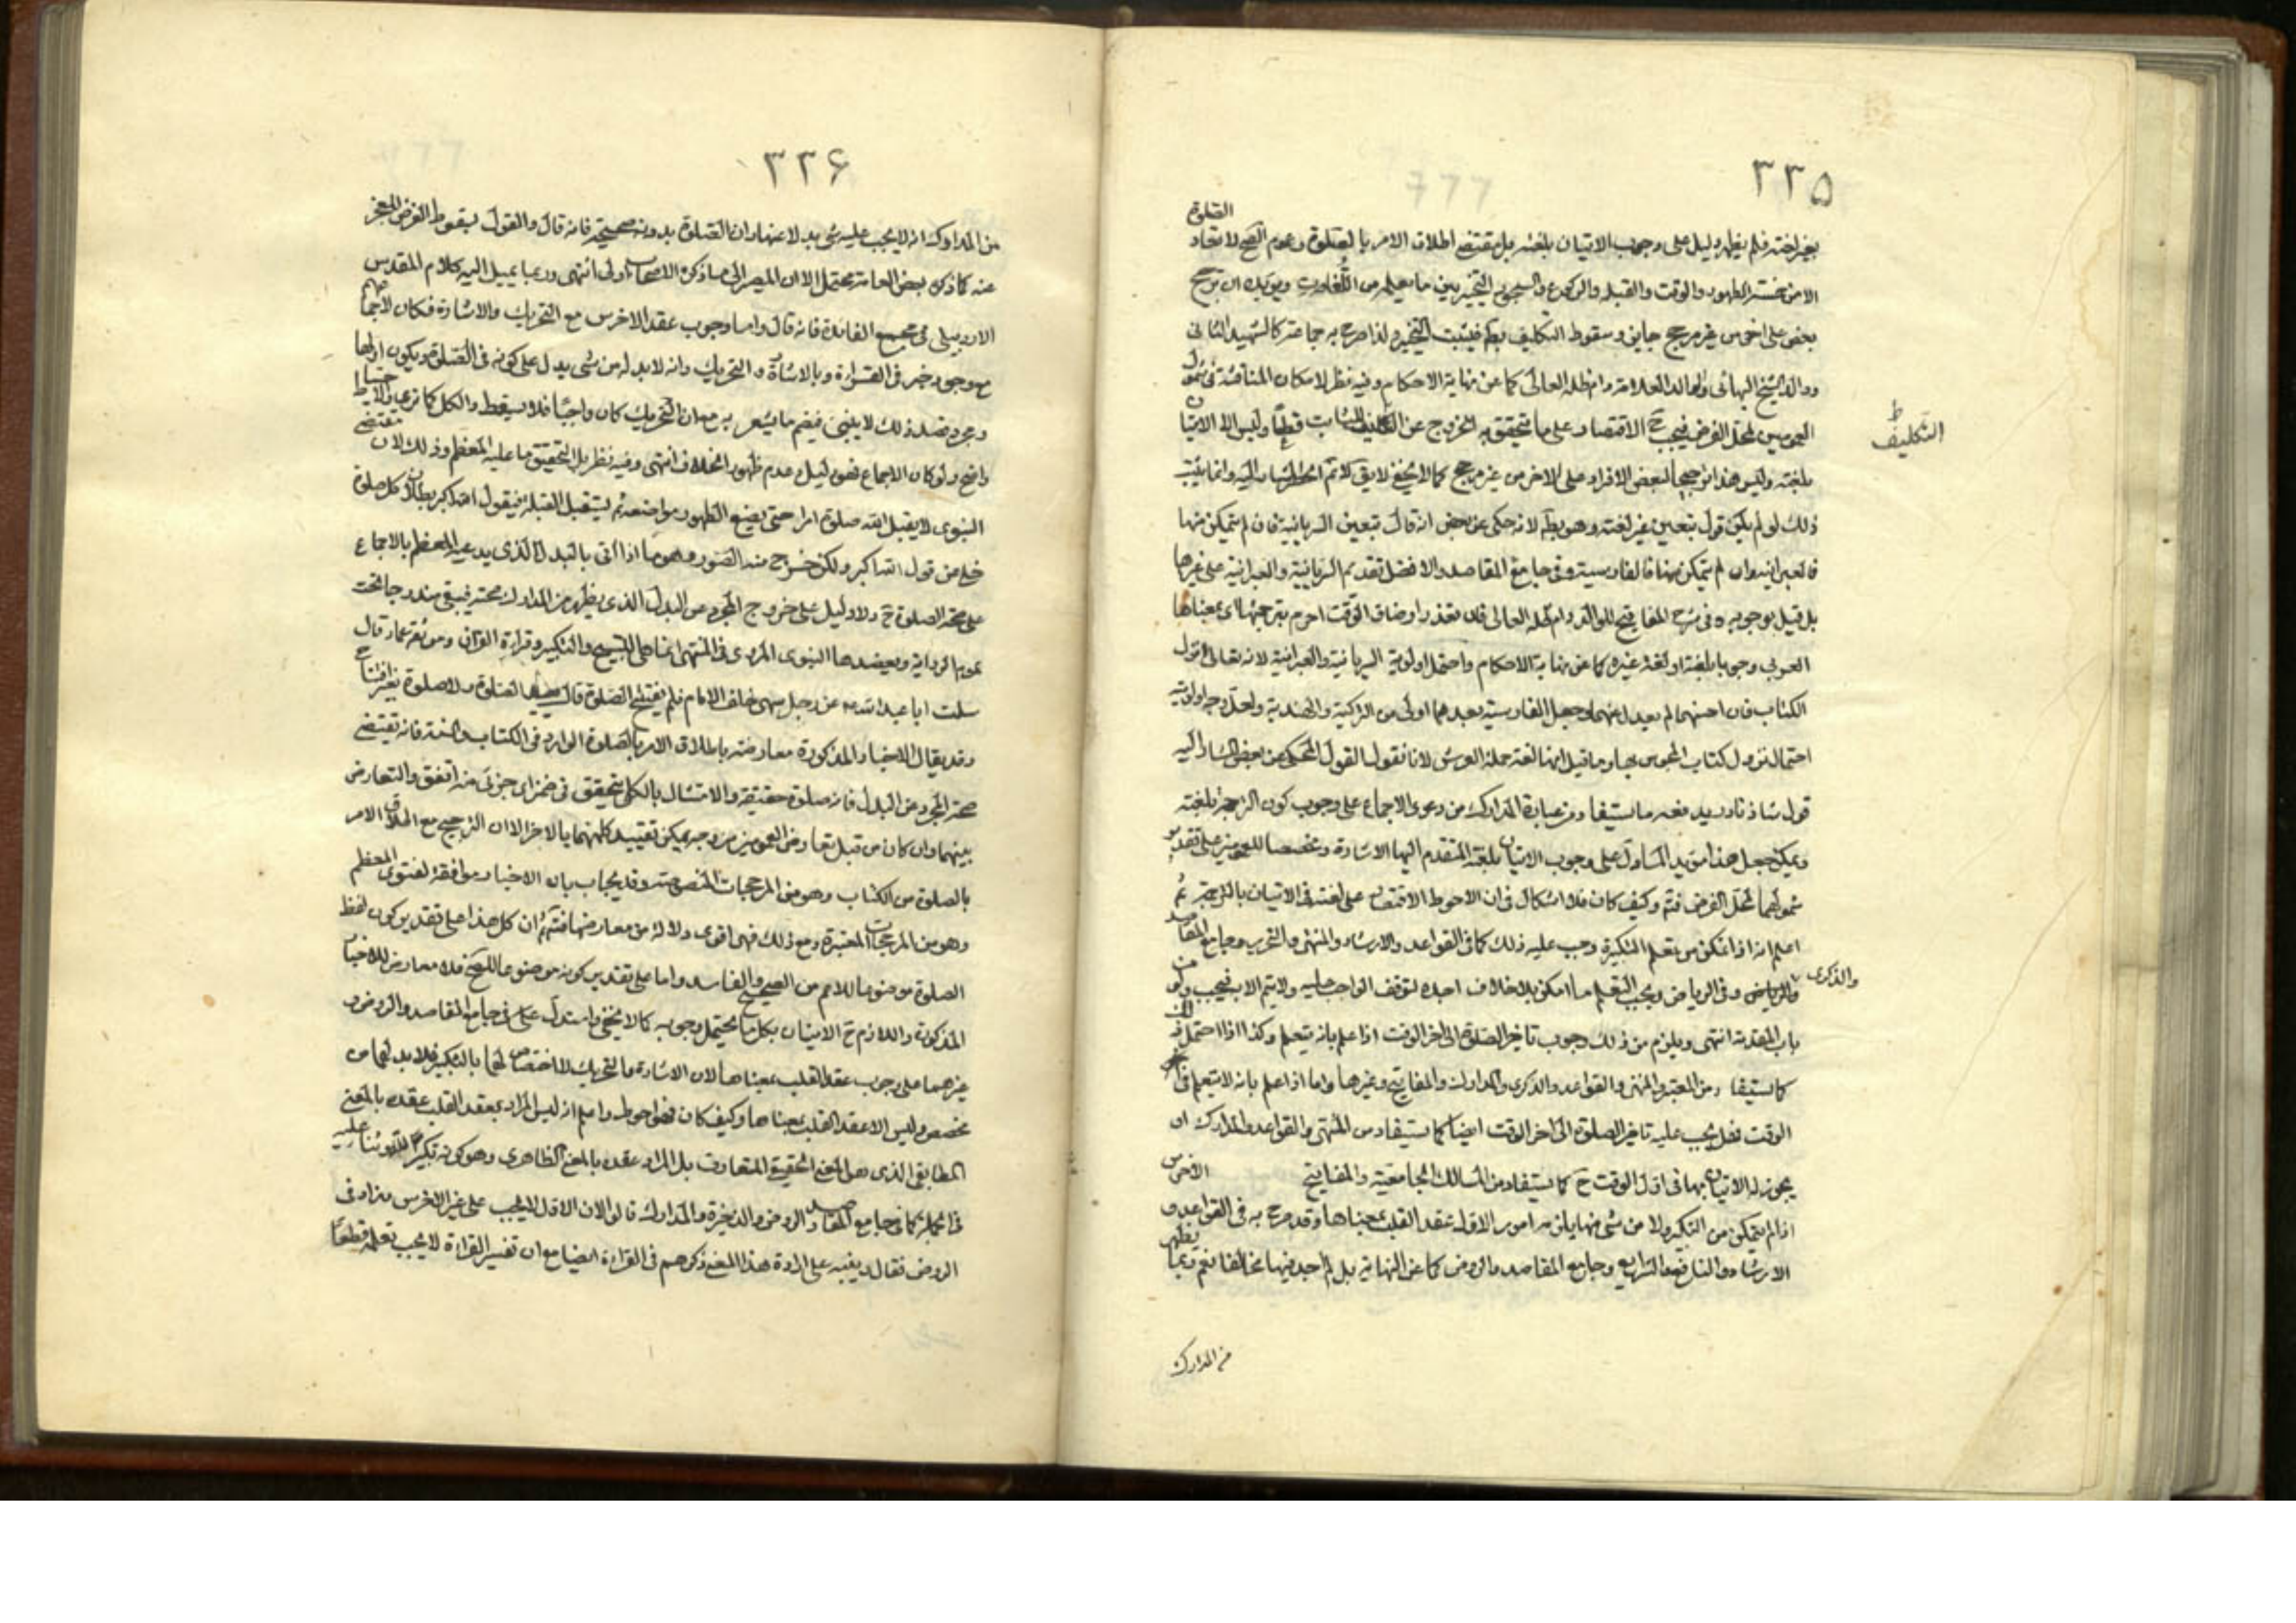 ٣٣۵
الصلوة
بغير لغته فلم يظهر دليل على وجوب الاتيان بلغته بل مقتضى اطلاق الامر بالصلوة وعموم الصح لا تعاد
الا من خمسة الطهور والوقت والقبلة والركوع والسجود التخيير بين ما يعلم من اللغات ويؤيده ان ترجيح
بعض على اخر من غير مرجح وسقوط التكليف بط فيثبت التخيير ولذا صرح به جماعة كالشهيد الثاني
ووالد الشيخ البهائي والوالد العلامة دام ظله العالى كما عن نهاية الاحكام وفيه نظر لامكان المناقشة في شمول
العمومين لمحل الفرض فيجب ح الاقتصار على ما يتحقق به الخروج عن التكليف الثابت قطعا وليس الا الاتيان
التكليف ط
بلغته وليس هذا ترجيحا لبعض الافراد على الاخر من غير مرجح كما لا يخفى لا يق كلا ثم المشار اليه وانما يثبت
ذلك لو لم يكن قول بتعيين غير لغته وهو بط لانه حكى عن بعض انه قال بتعين السريانية فان لم يتمكن منها
فالعبرانية وان لم يتمكن منها فالفارسية وفي جامع المقاصد والافضل تقديم السريانية والعبرانية على غيرها
بل قيل بوجوبه وفي شرح المفاتيح للوالد دام ظله العالى فان تعذر اوضاق الوقت احرم بترجمتها اى بمعناها
العربي وجوبا بلغته او لغة غيره كما عن نهاية الاحكام واحتمل اولوية السريانية والعبرانية لانه تعالى انزل
الكتاب فان احسنهما لم يعدل عنهما وجعل الفارسية بعدهما اولى من التركية والهندية ولعل وجه اولويته
احتمال نزول كتاب المجوس بها وما قيل انها لغة حملة العرش لانا نقول القول المحكى عن بعض المشار اليه
قول شاذ نادر يدفعه ما يستفاد من عبارة المدارك من دعوى الاجماع على وجوب كون الترجمة بلغته
ويمكن جعل هذا مؤيد المساول على وجوب الاتيان بلغته المتقدم اليها الاشارة ومخصصا للعمومين على تقدير
شمولهما لمحل الفرض فتم وكيف كان فلا اشكال في ان الاحوط الاقتصار على لغته في الاتيان بالترجمة ثم
اعلم انه اذا تمكن من تعلم التكبيرة وجب عليه ذلك كما في القواعد والارشاد والمنتهى والتحرير وجامع المقاصد
والذكرى
والرياض وفي الرياض ويجب التعلم ما امكن بلا خلاف اجده لتوقف الواجب عليه ولا يتم الا به فيجب ولو من
باب المقدمة انتهى ويلزم من ذلك وجوب تاخير الصلوة الى اخر الوقت اذا علم بانه يتعلم وكذا اذا احتمل ذلك
كما يستفاد من المعتبر والمنتهى والقواعد والذكرى والمدارك والمفاتيح وغيرها واما اذا علم بانه لا يتعلم في اخر
الوقت فهل يجب عليه تاخير الصلوة الى اخر الوقت ايضا كما يستفاد من المنتهى والقواعد والمدارك او
يجوز له الاتيان بها في اول الوقت ح كما يستفاد من المسالك الجامعية والمفاتيح الاخرس
اذا لم يتمكن من التكبير ولا من شى منها يلزمه امور الاول عقد القلب بمعناها وقد صرح به في القواعد و
الارشاد والنافع والشرايع وجامع المقاصد والروض كما عن النهاية بل لم اجد فيها مخالفا نعم ربما يظهر
من المدارك
٣٣۶
من المدارك انه لا يجب عليه شى بدلا عنها وان الصلوة بدونه صحيحة فانه قال والقول بسقوط الفرض للعجز
عنه كما ذكره بعض العامة محتمل الا ان المصير الى ما ذكره الاصحاب اولى انتهى وربما يميل اليه كلام المقدس
الاردبيلى في مجمع الفائدة فانه قال واما وجوب عقد الاخرس مع التحريك والاشارة فكان لاجماعهم
مع وجود خبر في القراءة وبالاشارة والتحريك وانه لابد له من شى يدل على كونه في الصلوة ويكون اولها
ومجرد قصد ذلك لا ينبغى فيضم ما يشعر به مع ان التحريك كان واجبا فلا يسقط والكل كما ترى والاحتياط
واضح ولو كان الاجماع فهو دليل وعدم ظهور الخلاف انتهى وفيه نظر بل التحقيق ما عليه المعظم وذلك لان مقتضى
النبوى لا يقبل الله صلوة امرء حتى يضع الطهور مواضعه ثم يستقبل القبلة فيقول الله اكبر بطلان كل صلوة
خلت من قول الله اكبر ولكن خرج منه الصورة وهو ما اذا اتى بالبدل الذى يدعيه المعظم بالاجماع
على صحة الصلوة ح ولا دليل على خروج المجرد عن البدل الذى يظهر من المدارك صحته فيبقى مندرجا تحت
عموم الرواية ويعضدها النبوى المروى في المنتهى انما هى التسبيح والتكبير وقراءة القران وموثقة عمار قال
سئلت ابا عبد الله ع عن رجل سهى خلف الامام فلم يفتتح الصلوة قال يعيد الصلوة ولا صلوة بغير افتتاح
وقد يقال الاخبار المذكورة معارضة باطلاق الامر بالصلوة الوارد في الكتاب والسنة فانه يقتضى
صحة المجرد عن البدل فانه صلوة حقيقة والامتثال بالكلى يتحقق في ضمن اى جزئى منه اتفق والتعارض
بينهما وان كان من قبيل تعارض العمومين من وجه يمكن تقييد كل منهما بالاخر الا ان الترجيح مع اطلاق الامر
بالصلوة من الكتاب وهو من المرجحات المنصوصة وقد يجاب بان الاخبار موافقة لفتوى المعظم
وهو من المرجحات المعتبرة ومع ذلك فهى اقوى دلالة من معارضها فتم ثم ان كل هذا على تقدير كون لفظ
الصلوة موضوعا للاعم من الصحيح والفاسد واما على تقدير كونه موضوعا للصحيح فلا معارض للاخبار
المذكورة واللازم ح الاتيان بكل ما يحتمل وجوبه كما لا يخفى واستدل على في جامع المقاصد والروض و
غيرهما على وجوب عقد القلب بمعناها لان الاشارة والتحريك لا اختصاص لهما بالتكبير فلا بد لهما من
مخصص وليس الا عقد القلب بمعناها وكيف كان فهو احوط واعلم انه ليس المراد بعقد القلب عقده بالمعنى
المطابقى الذى هو المعنى الحقيقة المتعارف بل المراد عقده بالمعنى الظاهرى وهو كونه تكبيرا لله وثناء عليه
في الجملة كما في جامع المقاصد والروض والذخيرة والمدارك قالوا لان الاول لا يجب على غير الاخرس وزاد في
الروض فقال وينبه على ارادة هذا المعنى ذكرهم في القراءة ايضا مع ان تفسير القراءة لا يجب تعلمه قطعا